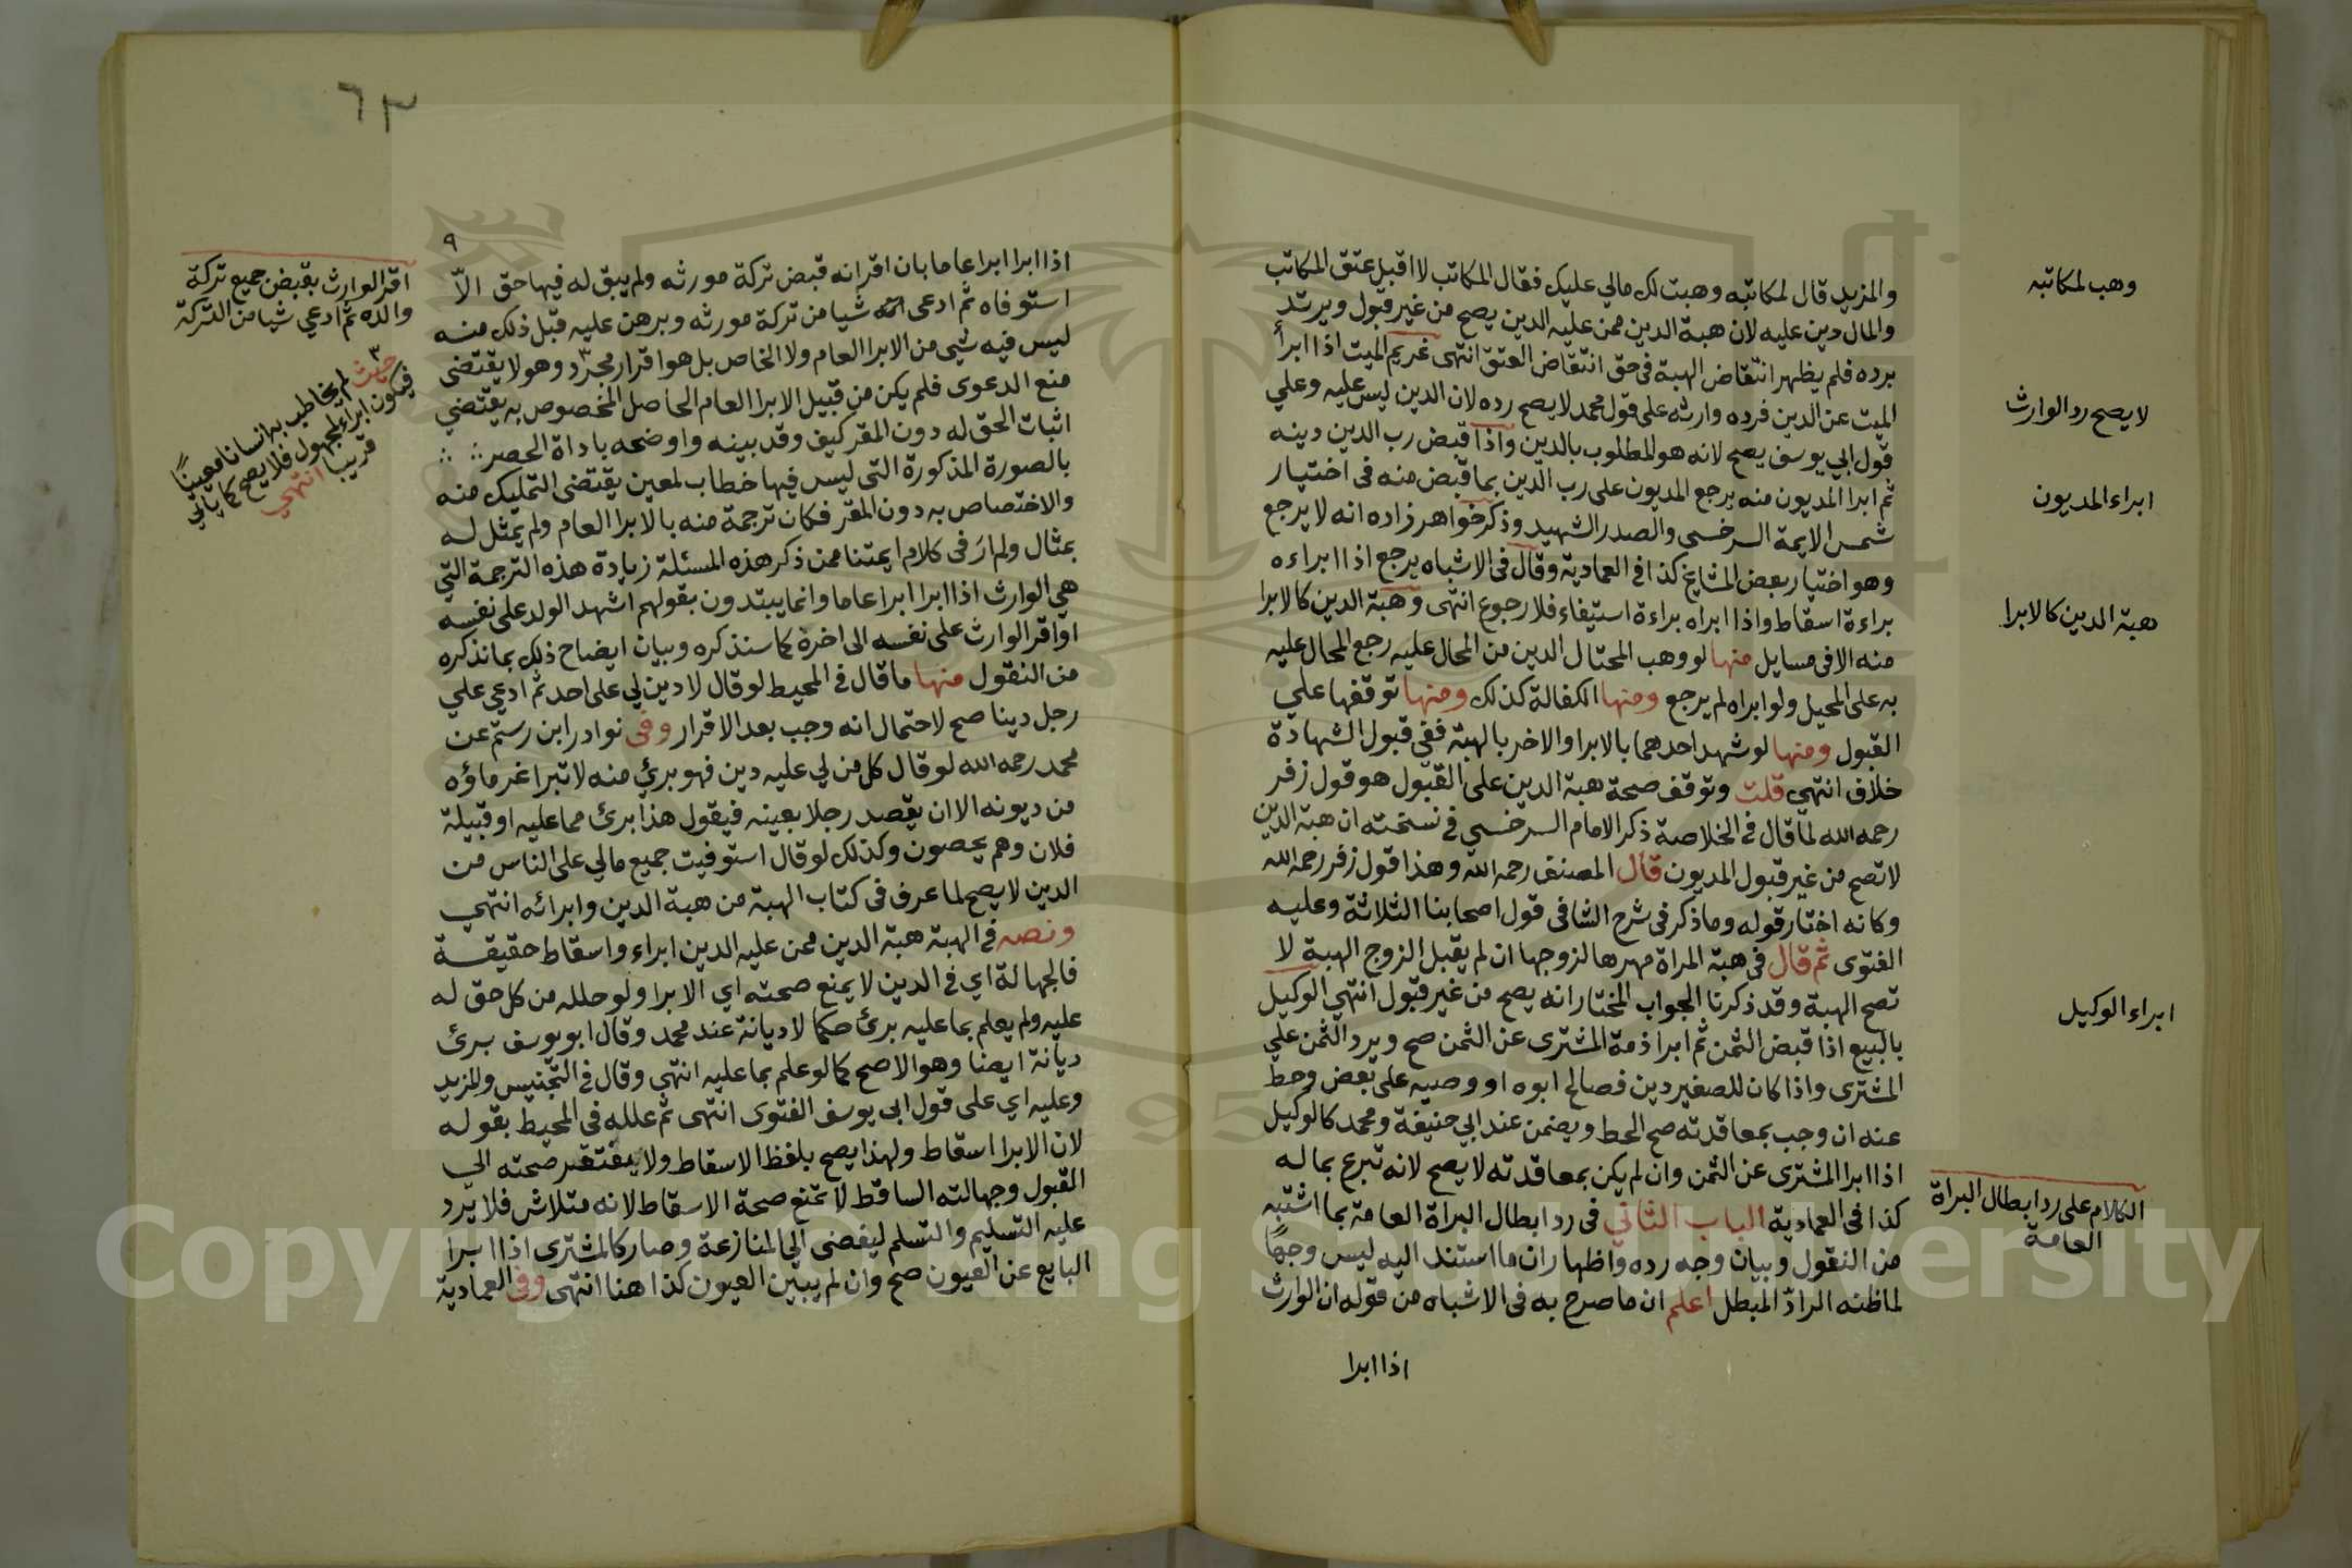 والمزيد قال لمكاتبه وهبت لك مالي عليك فقال المكاتب لا اقبل عتق المكاتب
والمال دين عليه لان هبة الدين ممن عليه الدين يصح من غير قبول ويرتد
برده فلم يظهر انتقاض الهبة في حق انتقاض العتق انتهى غريم الميت اذا ابرأ
الميت عن الدين فرده وارثه على قول محمد لا يصح رده لان الدين ليس عليه وعلي
قول ابي يوسف يصح لانه هو المطلوب بالدين واذا قبض رب الدين دينه
ثم ابرا المديون منه يرجع المديون على رب الدين بما قبض منه في اختيار
شمس الايمة السرخسي والصدر الشهيد وذكر خواهر زاده انه لا يرجع
وهو اختيار بعض المشايخ كذا في العمادية وقال في الاشباه يرجع اذا ابراءه
براءة اسقاط واذا ابراه براءة استيفاء فلا رجوع انتهى وهبة الدين كالابرا
منه الا في مسايل منها لو وهب المحتال الدين من المحال عليه رجع المحال عليه
به على المحيل ولو ابراه لم يرجع ومنها الكفالة كذلك ومنها توقفها علي
القبول ومنها لو شهد احدهما بالابرا والاخر بالهبة ففي قبول الشهادة
خلاف انتهي قلت وتوقف صحة هبة الدين على القبول هو قول زفر
رحمه الله لما قال في الخلاصة ذكر الامام السرخسي في نسخته ان هبة الدين
لا تصح من غير قبول المديون قال المصنف رحمه الله وهذا قول زفر رحمه الله
وكانه اختار قوله وما ذكر في شرح الشافى قول اصحابنا الثلاثة وعليه
الفتوى ثم قال في هبة المراة مهرها لزوجها ان لم يقبل الزوج الهبة لا
تصح الهبة وقد ذكرنا الجواب المختار انه يصح من غير قبول انتهي الوكيل
بالبيع اذا قبض الثمن ثم ابرا ذمة المشترى عن الثمن صح ويرد الثمن علي
المشترى واذا كان للصغير دين فصالح ابوه او وصيه على بعض وحط
عنه ان وجب بمعاقدته صح الحط ويضمن عند ابي حنيفة ومحمد كالوكيل
اذا ابرا المشترى عن الثمن وان لم يكن بمعاقدته لا يصح لانه تبرع بماله
كذا في العمادية الباب الثاني في رد ابطال البراة العامة بما اشتبه
من النقول وبيان وجه رده واظهار ان ما استند اليه ليس وجها
لما ظنه الرادّ المبطل اعلم ان ما صرح به في الاشباه من قوله ان الوارث
اذا ابرا
وهب لمكاتبه
لا يصح رد الوارث
ابراء المديون
هبة الدين كالابرا
ابراء الوكيل
الكلام على رد ابطال البراة
العامة
٦٣
٩
اذا ابرا ابرا عاما بان اقر انه قبض تركة مورثه ولم يبق له فيها حق الّا
استوفاه ثم ادعى شيا من تركة مورثه وبرهن عليه قبل ذلك منه
ليس فيه شي من الابرا العام ولا الخاص بل هو اقرار مجرد وهو لا يقتضى
منع الدعوى فلم يكن من قبيل الابرا العام الحاصل المخصوص به يقتضي
اثبات الحق له دون المقر كيف وقد بينه واوضحه باداة الحصر
بالصورة المذكورة التى ليس فيها خطاب لمعين يقتضى التمليك منه
والاختصاص به دون المقر فكان ترجمة منه بالابرا العام ولم يمثل له
بمثال ولم ارَ فى كلام ايمتنا ممن ذكر هذه المسئلة زيادة هذه الترجمة التي
هي الوارث اذا ابرا ابرا عاما وانما يبتدون بقولهم اشهد الولد على نفسه
او اقر الوارث على نفسه الى اخرة كما سنذكره وبيان ايضاح ذلك بما نذكره
من النقول منها ما قال في المحيط لو قال لا دين لي على احد ثم ادعي علي
رجل دينا صح لاحتمال انه وجب بعد الاقرار وفى نوادر ابن رستم عن
محمد رحمه الله لو قال كل من لي عليه دين فهو برئ منه لا تبرا غرماؤه
من ديونه الا ان يقصد رجلا بعينه فيقول هذا برئ مما عليه او قبيلة
فلان وهم يحصون وكذلك لو قال استوفيت جميع مالي على الناس من
الدين لا يصح لما عرف فى كتاب الهبة من هبة الدين وابرائه انتهي
ونصه في الهبة هبة الدين ممن عليه الدين ابراء واسقاط حقيقة
فالجهالة اي في الدين لا يمنع صحته اي الابرا ولو حلله من كل حق له
عليه ولم يعلم بما عليه برئ حكما لا ديانة عند محمد وقال ابو يوسف برئ
ديانة ايضا وهو الاصح كما لو علم بما عليه انتهي وقال في التجنيس والمزيد
وعليه اي على قول ابي يوسف الفتوى انتهى ثم علله في المحيط بقوله
لان الابرا اسقاط ولهذا يصح بلفظ الاسقاط ولا يفتقر صحته الي
القبول وجهالته الساقط لا تمنع صحة الاسقاط لانه متلاش فلا يرد
عليه التسليم والتسلم ليفضى الي المنازعة وصار كالمشترى اذا ابرا
البايع عن العيون صح وان لم يبين العيون كذا هنا انتهى وفى العمادية
اقر الوارث بقبض جميع تركة
والده ثم ادعي شيا من التركة
حيث لم يخاطب به انسانا معينا
فيكون ابراء لمجهول فلا يصح كما ياتي
قريبا انتهي
Copyright © King Saud University